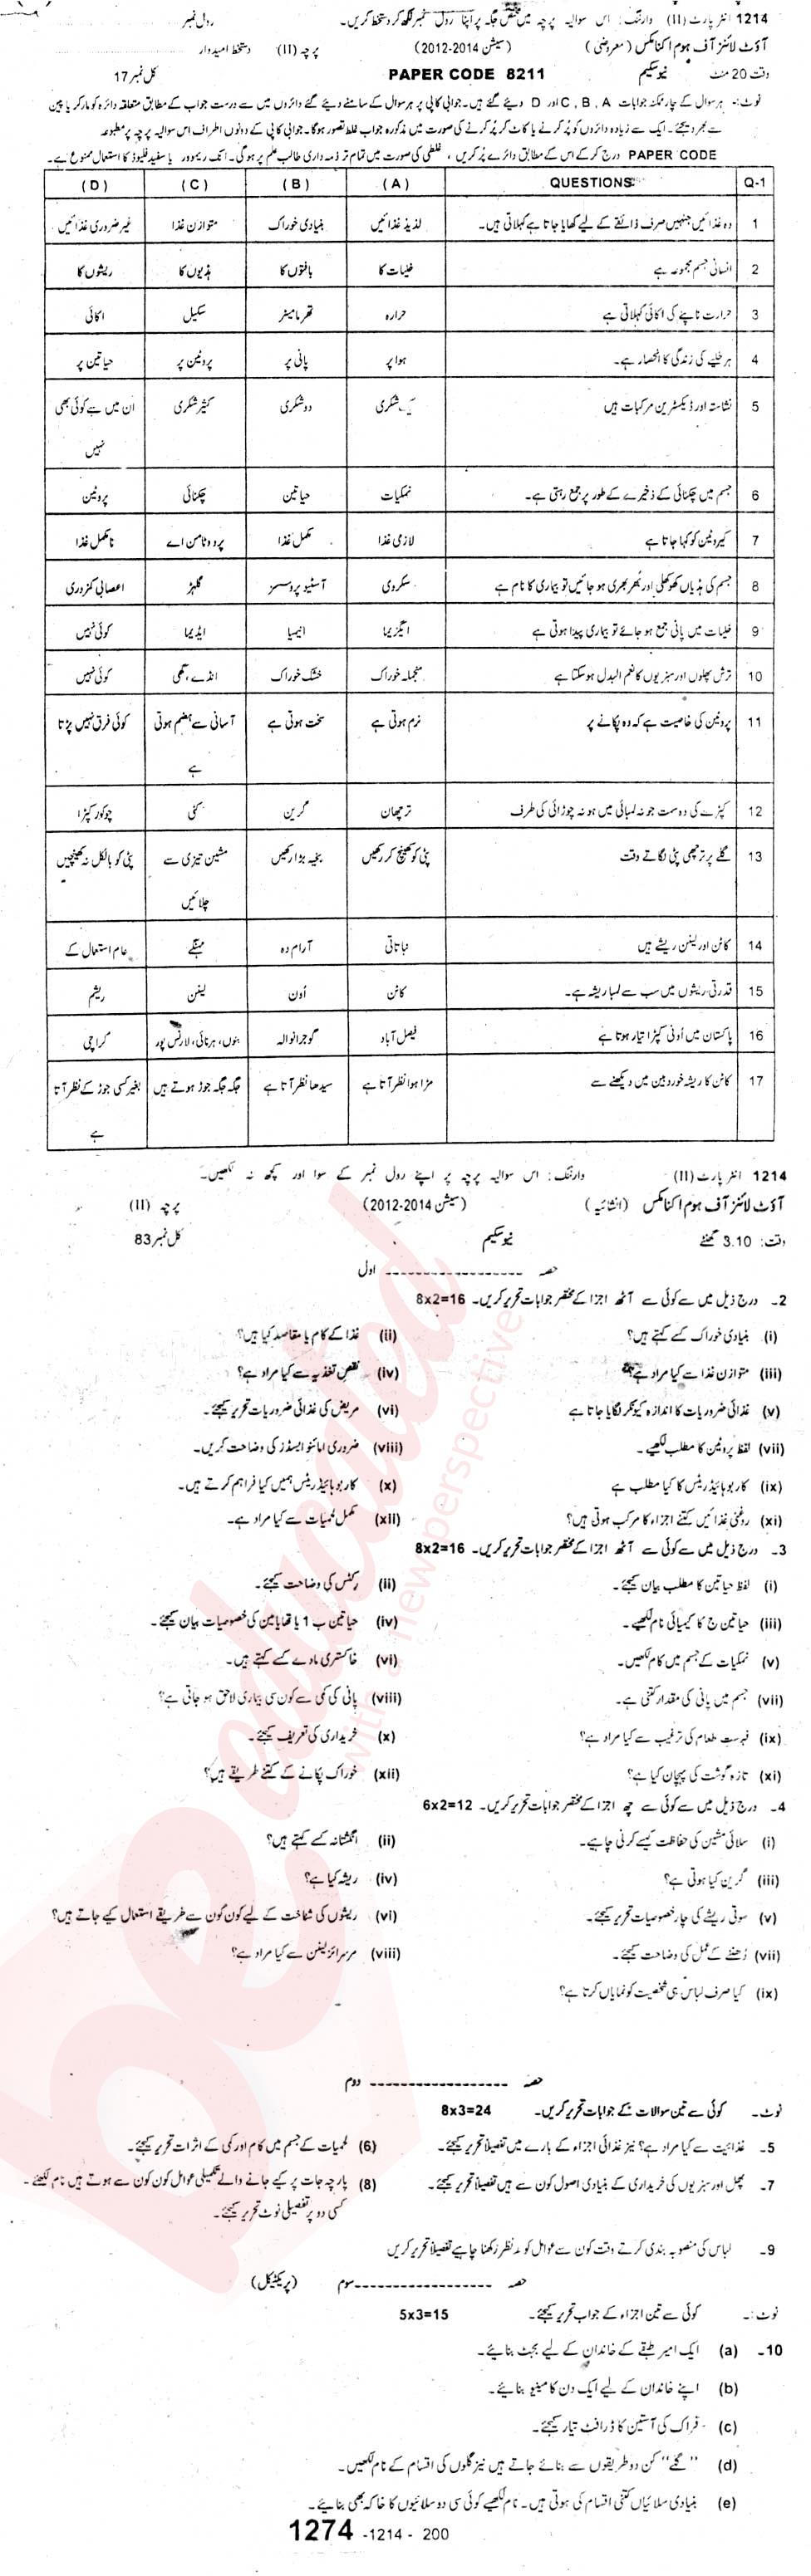 1214 انٹر پارٹ (II) وارننگ: اس سوالیہ پرچہ میں مختص جگہ پر اپنا رول نمبر لکھ کر دستخط کریں۔ رول نمبر
آؤٹ لائنز آف ہوم اکنامکس (معروضی) (سیشن 2014-2012) پرچہ (II) دستخط امیدوار
وقت 20 منٹ نیو سکیم PAPER CODE 8211 کل نمبر 17
نوٹ:- ہر سوال کے چار ممکنہ جوابات A ، B ، C اور D دیئے گئے ہیں۔ جوابی کاپی پر ہر سوال کے سامنے دیئے گئے دائروں میں سے درست جواب کے مطابق متعلقہ دائرہ کو مارکر یا پین
سے بھر دیجئے۔ ایک سے زیادہ دائروں کو پُر کرنے یا کاٹ کر پُر کرنے کی صورت میں مذکورہ جواب غلط تصور ہوگا۔ جوابی کاپی کے دونوں اطراف اس سوالیہ پرچہ پر مطبوعہ
PAPER CODE درج کر کے اس کے مطابق دائرے پُر کریں، غلطی کی صورت میں تمام تر ذمہ داری طالب علم پر ہوگی۔ انک ریموور یا سفید فلیوڈ کا استعمال ممنوع ہے۔
Q-1 QUESTIONS (A) (B) (C) (D)
1 وہ غذائیں جنہیں صرف ذائقے کے لیے کھایا جاتا ہے کہلاتی ہیں۔ لذیذ غذائیں بنیادی خوراک متوازن غذا غیر ضروری غذائیں
2 انسانی جسم مجموعہ ہے خلیات کا بافتوں کا ہڈیوں کا ریشوں کا
3 حرارت ناپنے کی اکائی کہلاتی ہے حرارہ تھرمامیٹر سکیل اکائی
4 ہر خلیے کی زندگی کا انحصار ہے۔ ہوا پر پانی پر پروٹین پر حیاتین پر
5 نشاستہ اور ڈیکسٹرین مرکبات ہیں یک شکری دو شکری کثیر شکری ان میں سے کوئی بھی
نہیں
6 جسم میں چکنائی کے ذخیرے کے طور پر جمع رہتی ہے۔ نمکیات حیاتین چکنائی پروٹین
7 کیروٹین کو کہا جاتا ہے لازمی غذا مکمل غذا پرووٹامن اے نامکمل غذا
8 جسم کی ہڈیاں کھوکھلی اور بھُربھری ہو جائیں تو بیماری کا نام ہے سکروی آسٹیوپروسسز گلہڑ اعصابی کمزوری
9 خلیات میں پانی جمع ہو جائے تو بیماری پیدا ہوتی ہے ایگزیما انیمیا ایڈیما کوئی نہیں
10 ترش پھلوں اور سبزیوں کا نعم البدل ہو سکتا ہے منجملہ خوراک خشک خوراک انڈے، گھی کوئی نہیں
11 پروٹین کی خاصیت ہے کہ وہ پکانے پر نرم ہوتی ہے سخت ہوتی ہے آسانی سے ہضم ہوتی کوئی فرق نہیں پڑتا
ہے
12 کپڑے کی وہ سمت جو نہ لمبائی میں ہو نہ چوڑائی کی طرف ترچھان گرین کنی چوکور کپڑا
13 گلے پر ترچھی پٹی لگاتے وقت پٹی کو کھینچ کر رکھیں بخیہ بڑا رکھیں مشین تیزی سے پٹی کو بالکل نہ کھینچیں
چلائیں
14 کاٹن اور لینن ریشے ہیں نباتاتی آرام دہ مہنگے عام استعمال کے
15 قدرتی ریشوں میں سب سے لمبا ریشہ ہے۔ کاٹن اُون لینن ریشم
16 پاکستان میں اُونی کپڑا تیار ہوتا ہے فیصل آباد گوجرانوالہ بنوں، ہرنائی، لارنس پور کراچی
17 کاٹن کا ریشہ خوردبین میں دیکھنے سے مڑا ہوا نظر آتا ہے سیدھا نظر آتا ہے جگہ جگہ جوڑ ہوتے ہیں بغیر کسی جوڑ کے نظر آتا
ہے
1214 انٹر پارٹ (II) وارننگ: اس سوالیہ پرچہ پر اپنے رول نمبر کے سوا اور کچھ نہ لکھیں۔
آؤٹ لائنز آف ہوم اکنامکس (انشائیہ) (سیشن 2014-2012) پرچہ (II)
وقت: 3.10 گھنٹے نیو سکیم کل نمبر 83
حصہ ------------------ اول
2۔ درج ذیل میں سے کوئی سے آٹھ اجزا کے مختصر جوابات تحریر کریں۔ 8x2=16
(i) بنیادی خوراک کسے کہتے ہیں؟ (ii) غذا کے کام یا مقاصد کیا ہیں؟
(iii) متوازن غذا سے کیا مراد ہے؟ (iv) نقص تغذیہ سے کیا مراد ہے؟
(v) غذائی ضروریات کا اندازہ کیونکر لگایا جاتا ہے (vi) مریض کی غذائی ضروریات تحریر کیجئے۔
(vii) لفظ پروٹین کا مطلب لکھیے۔ (viii) ضروری امائنو ایسڈز کی وضاحت کریں۔
(ix) کاربوہائیڈریٹس کا کیا مطلب ہے (x) کاربوہائیڈریٹس ہمیں کیا فراہم کرتے ہیں۔
(xi) روغنی غذائیں کتنے اجزاء کا مرکب ہوتی ہیں؟ (xii) مکمل لحمیات سے کیا مراد ہے۔
3۔ درج ذیل میں سے کوئی سے آٹھ اجزا کے مختصر جوابات تحریر کریں۔ 8x2=16
(i) لفظ حیاتین کا مطلب بیان کیجئے۔ (ii) رکٹس کی وضاحت کیجئے۔
(iii) حیاتین ج کا کیمیائی نام لکھیے۔ (iv) حیاتین ب 1 یا تھایامین کی خصوصیات بیان کیجئے۔
(v) نمکیات کے جسم میں کام لکھیں۔ (vi) خاکستری مادے کسے کہتے ہیں۔
(vii) جسم میں پانی کی مقدار کتنی ہے۔ (viii) پانی کی کمی سے کون سی بیماری لاحق ہو جاتی ہے؟
(ix) فہرست طعام کی ترغیب سے کیا مراد ہے؟ (x) خریداری کی تعریف کیجئے۔
(xi) تازہ گوشت کی پہچان کیا ہے؟ (xii) خوراک پکانے کے کتنے طریقے ہیں؟
4۔ درج ذیل میں سے کوئی سے چھ اجزا کے مختصر جوابات تحریر کریں۔ 6x2=12
(i) سلائی مشین کی حفاظت کیسے کرنی چاہیے۔ (ii) انگشتانہ کسے کہتے ہیں؟
(iii) گرین کیا ہوتی ہے؟ (iv) ریشہ کیا ہے؟
(v) سوتی ریشے کی چار خصوصیات تحریر کیجئے۔ (vi) ریشوں کی شناخت کے لیے کون کون سے طریقے استعمال کیے جاتے ہیں؟
(vii) دُھننے کے عمل کی وضاحت کیجئے۔ (viii) مرسرائز لینن سے کیا مراد ہے؟
(ix) کیا صرف لباس ہی شخصیت کو نمایاں کرتا ہے؟
حصہ ------------------ دوم
نوٹ۔ کوئی سے تین سوالات کے جوابات تحریر کریں۔ 8x3=24
5۔ غذائیت سے کیا مراد ہے؟ نیز غذائی اجزاء کے بارے میں تفصیلاً تحریر کیجئے۔ (6) لحمیات کے جسم میں کام اور کمی کے اثرات تحریر کیجئے۔
7۔ پھل اور سبزیوں کی خریداری کے بنیادی اصول کون سے ہیں تفصیلاً تحریر کیجئے۔ (8) پارچہ جات پر کیے جانے والے تکمیلی عوامل کون کون سے ہوتے ہیں نام لکھئے۔
کسی دو پر تفصیلی نوٹ تحریر کیجئے۔
9۔ لباس کی منصوبہ بندی کرتے وقت کون سے عوامل کو مدنظر رکھنا چاہیے تفصیلاً تحریر کریں
حصہ ------------------ سوم (پریکٹیکل)
نوٹ:۔ کوئی سے تین اجزاء کے جواب تحریر کیجئے۔ 5x3=15
10۔ (a) ایک امیر طبقے کے خاندان کے لیے بجٹ بنائیے۔
(b) اپنے خاندان کے لیے ایک دن کا مینیو بنائیے۔
(c) فراک کی آستین کا ڈرافٹ تیار کیجئے۔
(d) "گلے" کن دو طریقوں سے بنائے جاتے ہیں نیز گلوں کی اقسام کے نام لکھیں۔
(e) بنیادی سلائیاں کتنی اقسام کی ہوتی ہیں۔ نام لکھیے کوئی سی دو سلائیوں کا خاکہ بھی بنائیے۔
1274 -1214 - 200
beeducated
with a new perspective